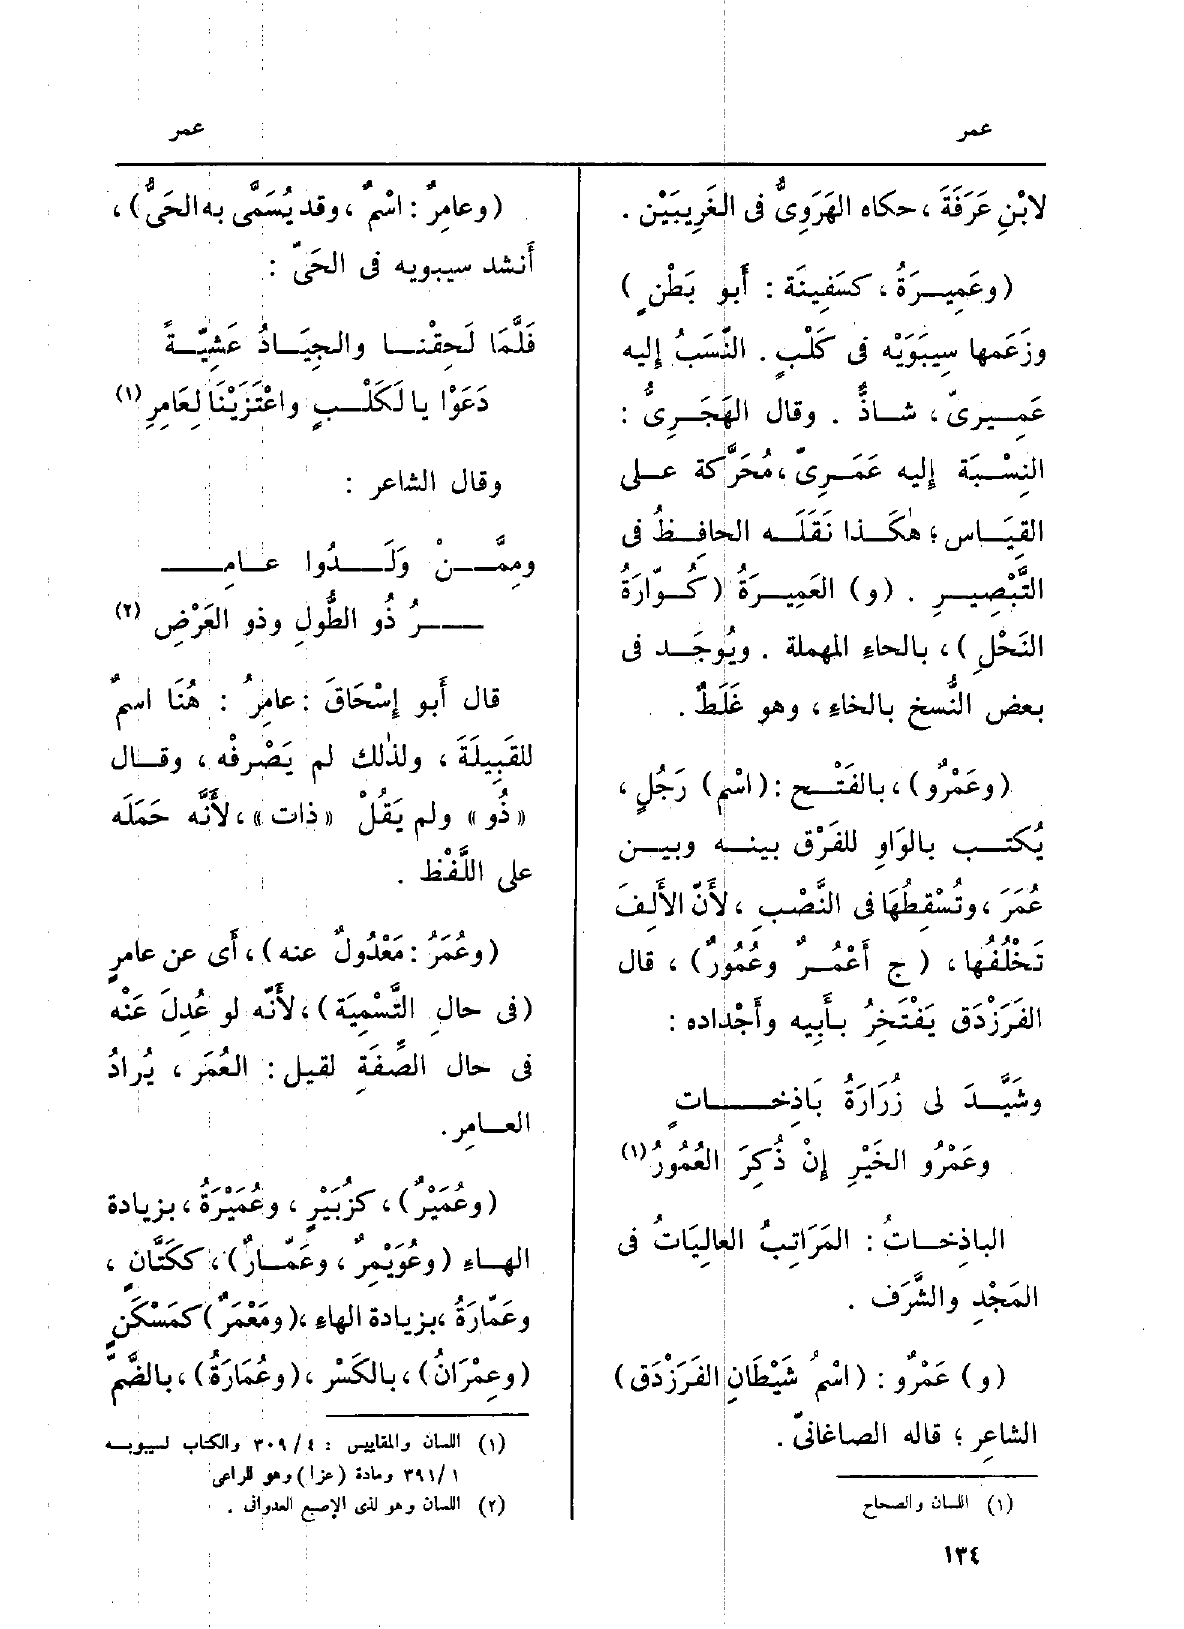 عمر
عمر
لابْنِ عَرَفَةَ ، حكاه الهَرَوِىُّ فى الغَرِيبَيْن .
(وعَمِيرَةُ ، كسَفِينَة : أَبو بَطْنٍ )
وزَعَمها سِيبَوَيْه فى كَلْبٍ . النَّسَبُ إليه
عَمِيرىّ ، شاذٌّ . وقال الهَجَرِىُّ :
النِسْبَة إليه عَمَرِىّ ، مُحَرَّكة على
القِيَاس ؛ هٰكَذا نَقَلَه الحافِظُ فى
التَّبْصِيرِ . (و) العَمِيرَةُ (كُوّارَةُ
النَحْلِ ) ، بالحاءِ المهملة . ويُوجَد فى
بعض النُّسخ بالخاءِ ، وهو غَلَطٌ .
(وعَمْرٌو) ، بالفَتْح : (اسْم) رَجُلٍ ،
يُكتب بالوَاوِ للفَرْق بينه وبين
عُمَرَ ، وتُسْقِطُهَا فى النَّصْبِ ، لأَنّ الأَلِفَ
تَخْلُفُها ، (ج أَعْمُرٌ وعُمُورٌ) ، قال
الفَرَزْدَق يَفْتَخِرُ بأَبِيه وأَجْداده :
وشَيَّدَ لى زُرَارَةُ بَاذِخاتٍ
وعَمْرُو الخَيْرِ إنْ ذُكِرَ العُمُورُ (١)
الباذِخاتُ : المَرَاتِبُ العالِيَاتُ فى
المَجْدِ والشَّرَف .
(و) عَمْرٌو : (اسْمُ شَيْطَانِ الفَرَزْدَق)
الشاعر ؛ قاله الصاغانىّ .
(١) اللسان والصحاح
١٣٤
(وعامِرٌ : اسْمٌ ، وقد يُسَمَّى به الحَىُّ) ،
أَنشد سيبويه فى الحَىّ :
فَلَمَّا لَحِقْنا والجِيَادُ عَشِيّةً
دَعَوْا يالَكَلْبٍ واعْتَزَيْنَا لِعَامِرِ (١)
وقال الشاعر :
ومِمَّنْ وَلَدُوا عامِــ
ــرُ ذُو الطُّولِ وذو العَرْضِ (٢)
قال أَبو إسْحَاقَ : عامِرُ : هُنَا اسمٌ
للقَبِيلَةَ ، ولذٰلك لم يَصْرِفْه ، وقال
« ذُو » ولم يَقُلْ « ذات » ، لأَنَّه حَمَلَه
على اللَّفْظ .
(وعُمَرُ : مَعْدُولٌ عنه) ، أَى عن عامرٍ
(فى حالِ التَّسْمِيَة) ، لأَنَّه لو عُدِلَ عَنْه
فى حال الصِّفَةِ لقيل : العُمَر ، يُرادُ
العامِر .
(وعُمَيْرٌ) ، كزُبَيْرٍ ، وعُمَيْرَةُ ، بزيادة
الهاءِ (وعُوَيْمِرٌ ، وعَمّارٌ) ، ككَتَّانٍ ،
وعَمّارَةُ ، بزيادة الهاءِ ، (ومَعْمَرٌ) كمَسْكَنٍ
(وعِمْرَانُ) ، بالكَسْر ، (وعُمَارَةُ) ، بالضَّمِّ
(١) اللسان والمقاييس : ٤/ ٣٠٩ والكتاب لسيبويه
١/ ٣٩١ ومادة (عزا) وهو للراعى
(٢) اللسان وهو لذى الإصبع العدوانى .